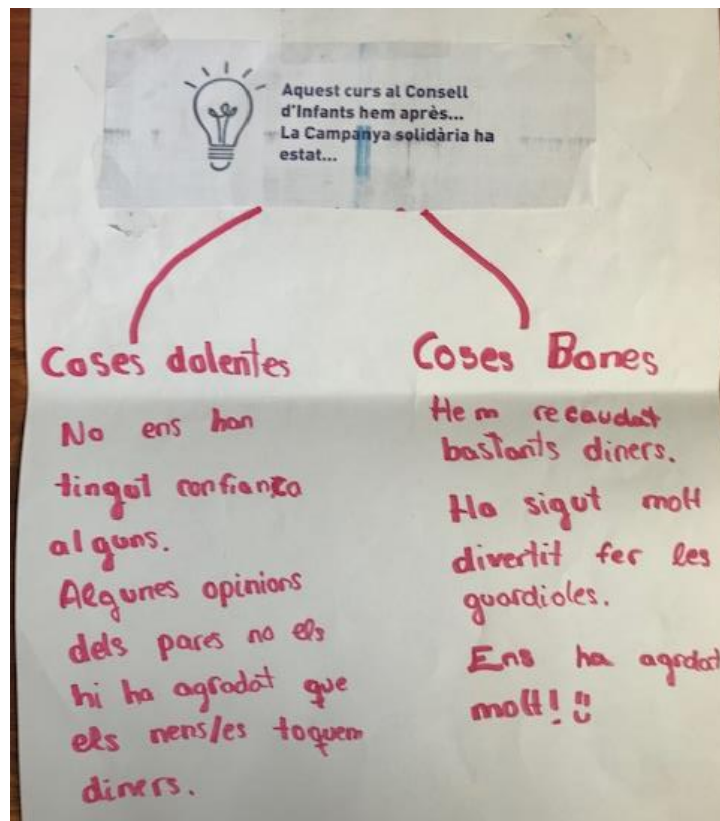 Aquest curs al Consell
d'Infants hem après...
La Campanya solidària ha
estat...
Coses dolentes
No ens han
tingut confiança
alguns.
Algunes opinions
dels pares no els
hi ha agradat que
els nens/es toquem
diners.
Coses Bones
Hem recaudat
bastants diners.
Ha sigut molt
divertit fer les
guardioles.
Ens ha agradat
molt!